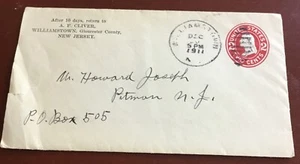 After 10 days, return to
A. F. CLIVER,
WILLIAMSTOWN, Gloucester County,
NEW JERSEY.
WILLIAMSTOWN
DEC
5 PM
1911
UNITED STATES
2 CENTS 2
Mr. Howard Joseph
Pitman N. J.
P.O. Box 505